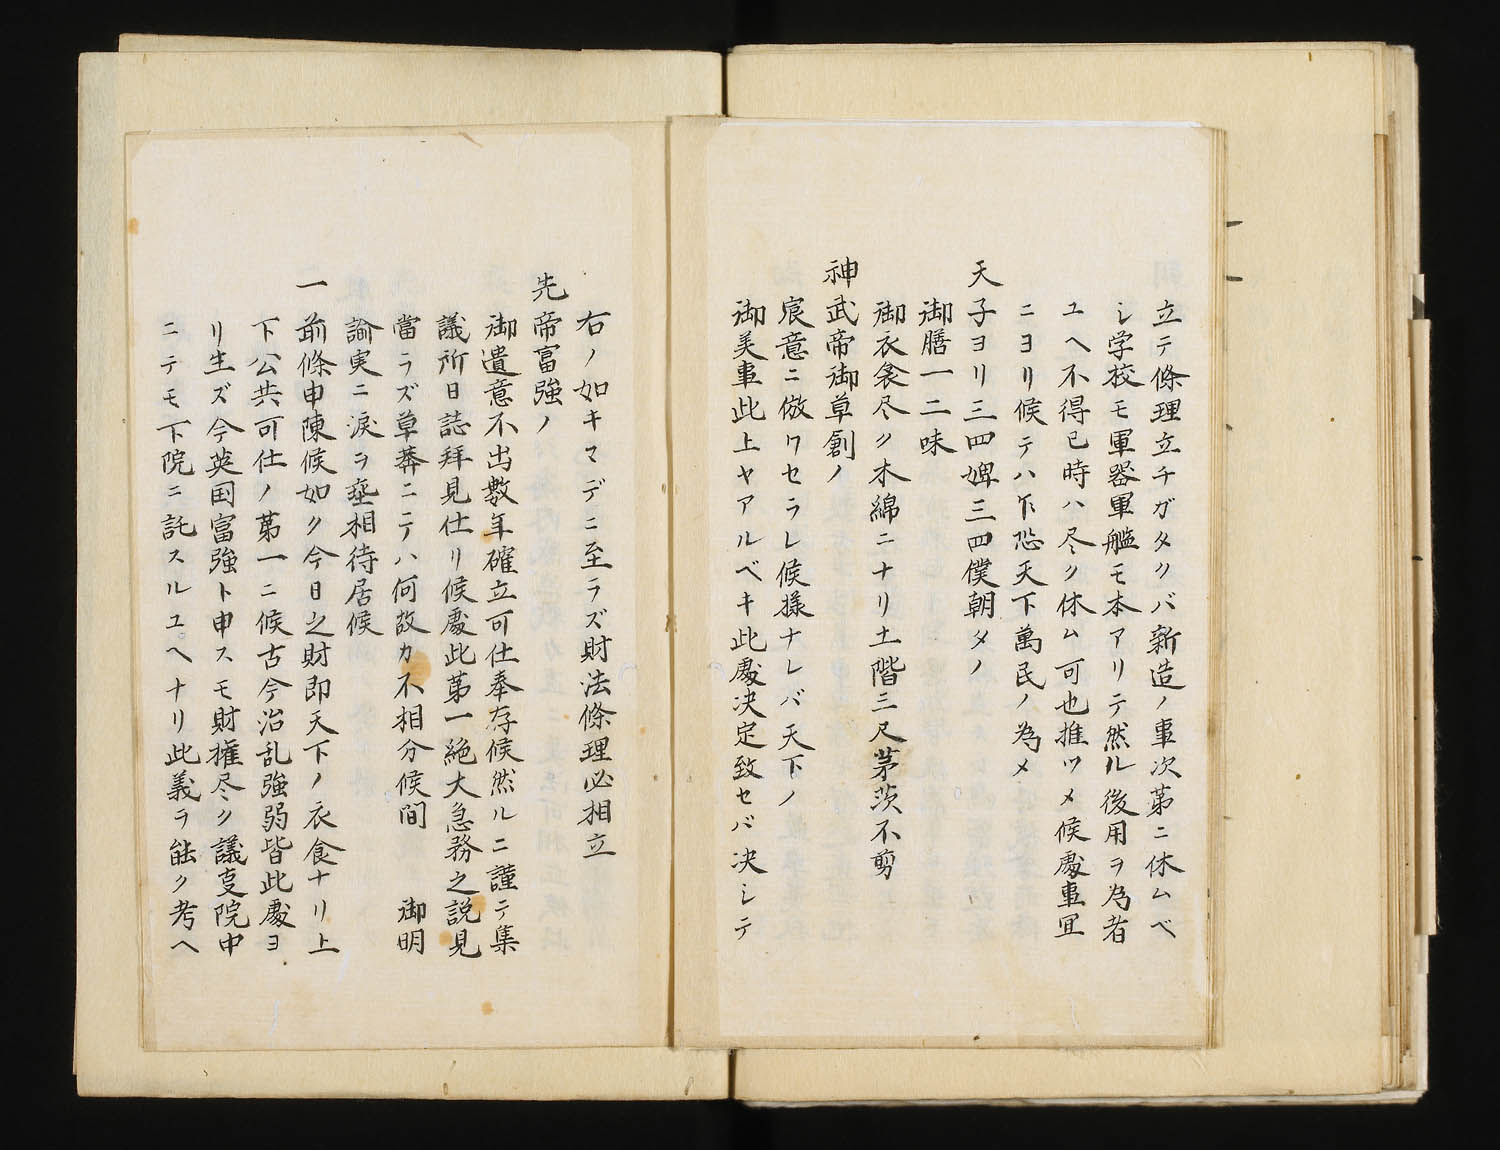 立テ條理立チガタクバ新造ノ事次第ニ休ムベ
シ学校モ軍器軍艦モ本アリテ然ル後用ヲ為者
ユヘ不得已時ハ尽ク休ム可也推ツメ候處事宜
ニヨリ候テハ乍恐天下萬民ノ為メ
天子ヨリ三四婢三四僕朝夕ノ
御膳一二味
御衣裳尽ク木綿ニナリ土階三尺茅茨不剪
神武帝御草創ノ
宸意ニ倣ワセラレ候様ナレバ天下ノ
御美事此上ヤアルベキ此處决定致セバ决シテ
右ノ如キマデニ至ラズ財法條理必相立
先帝富強ノ
御遺意不出數年確立可仕奉存候然ルニ謹テ集
議所日誌拜見仕リ候處此第一絶大急務之説見
當ラズ草莽ニテハ何故カ不相分候間 御明
諭実ニ涙ヲ垂相待居候
一前條申陳候如ク今日之財即天下ノ衣食ナリ上
下公共可仕ノ第一ニ候古今治乱強弱皆此處ヨ
リ生ズ今英国富強ト申スモ財権尽ク議事院中
ニテモ下院ニ託スルユヘナリ此義ヲ能ク考ヘ